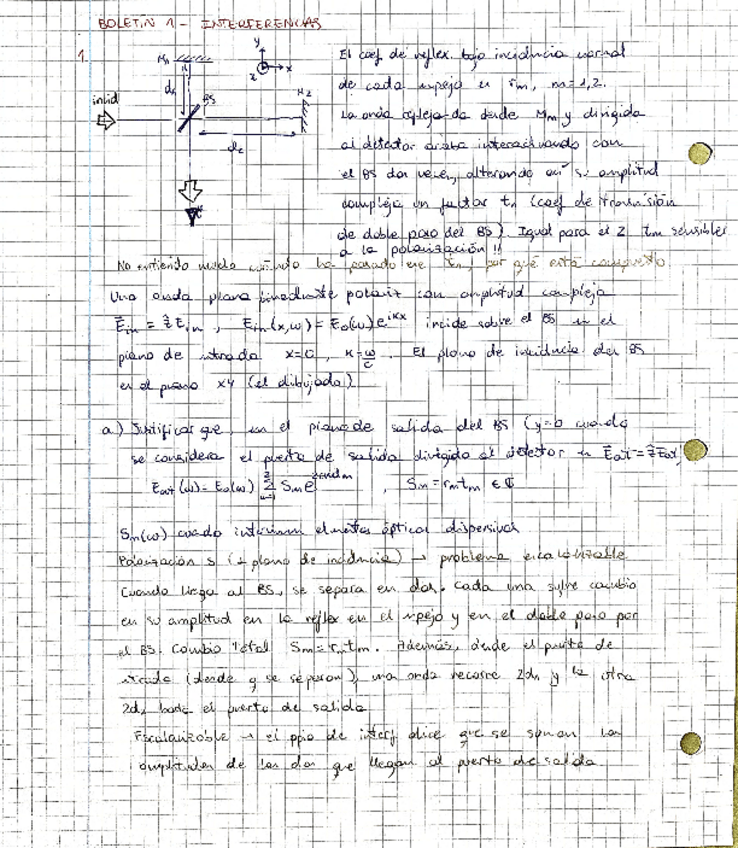 BOLETIN 1 - INTERFERENCIAS
1.
M1
y
x
z
d1
BS
M2
incid
d2
El coef de reflex. bajo incidencia normal
de cada espejo es rm, m=1,2.
La onda reflejada desde Mm y dirigida
al detector acaba interactuando con
el BS dos veces, alterando así su amplitud
compleja un factor tm (coef de transmisión
de doble paso del BS). Igual para el 2 tm sensibles
a la polarización!!
No entiendo cuándo ha pasado ese por qué está compuesto.
Una onda plana linealmente polariz con amplitud compleja
E⃗in = ẑ Ein, Ein(x,ω) = E0(ω)e^{ikx} incide sobre el BS en el
plano de entrada x=0, k=ω/c. El plano de incidencia del BS
es el plano xy (el dibujado)
a) Justificar que, en el plano de salida del BS (y=0 cuando
se considera el puerto de salida dirigido al detector es E⃗out = ẑ Eout,
Eout(ω) = E0(ω) Σ Sm e^{2ikdm}, Sm = rm tm ∈ ℂ
Sm(ω) cuando intervienen elementos ópticos dispersivos
Polarización s (⊥ plano de incidencia) → problema escalarizable
Cuando llega al BS, se separa en dos. Cada una sufre cambio
en su amplitud en la reflex en el espejo y en el doble paso por
el BS. Cambio total Sm = rm tm. Además, desde el puerto de
entrada (desde q se separan), una onda recorre 2d1 y la otra
2d2 hasta el puerto de salida
Escalarizable → el ppio de interf dice que se suman las
amplitudes de las dos que llegan al puerto de salida